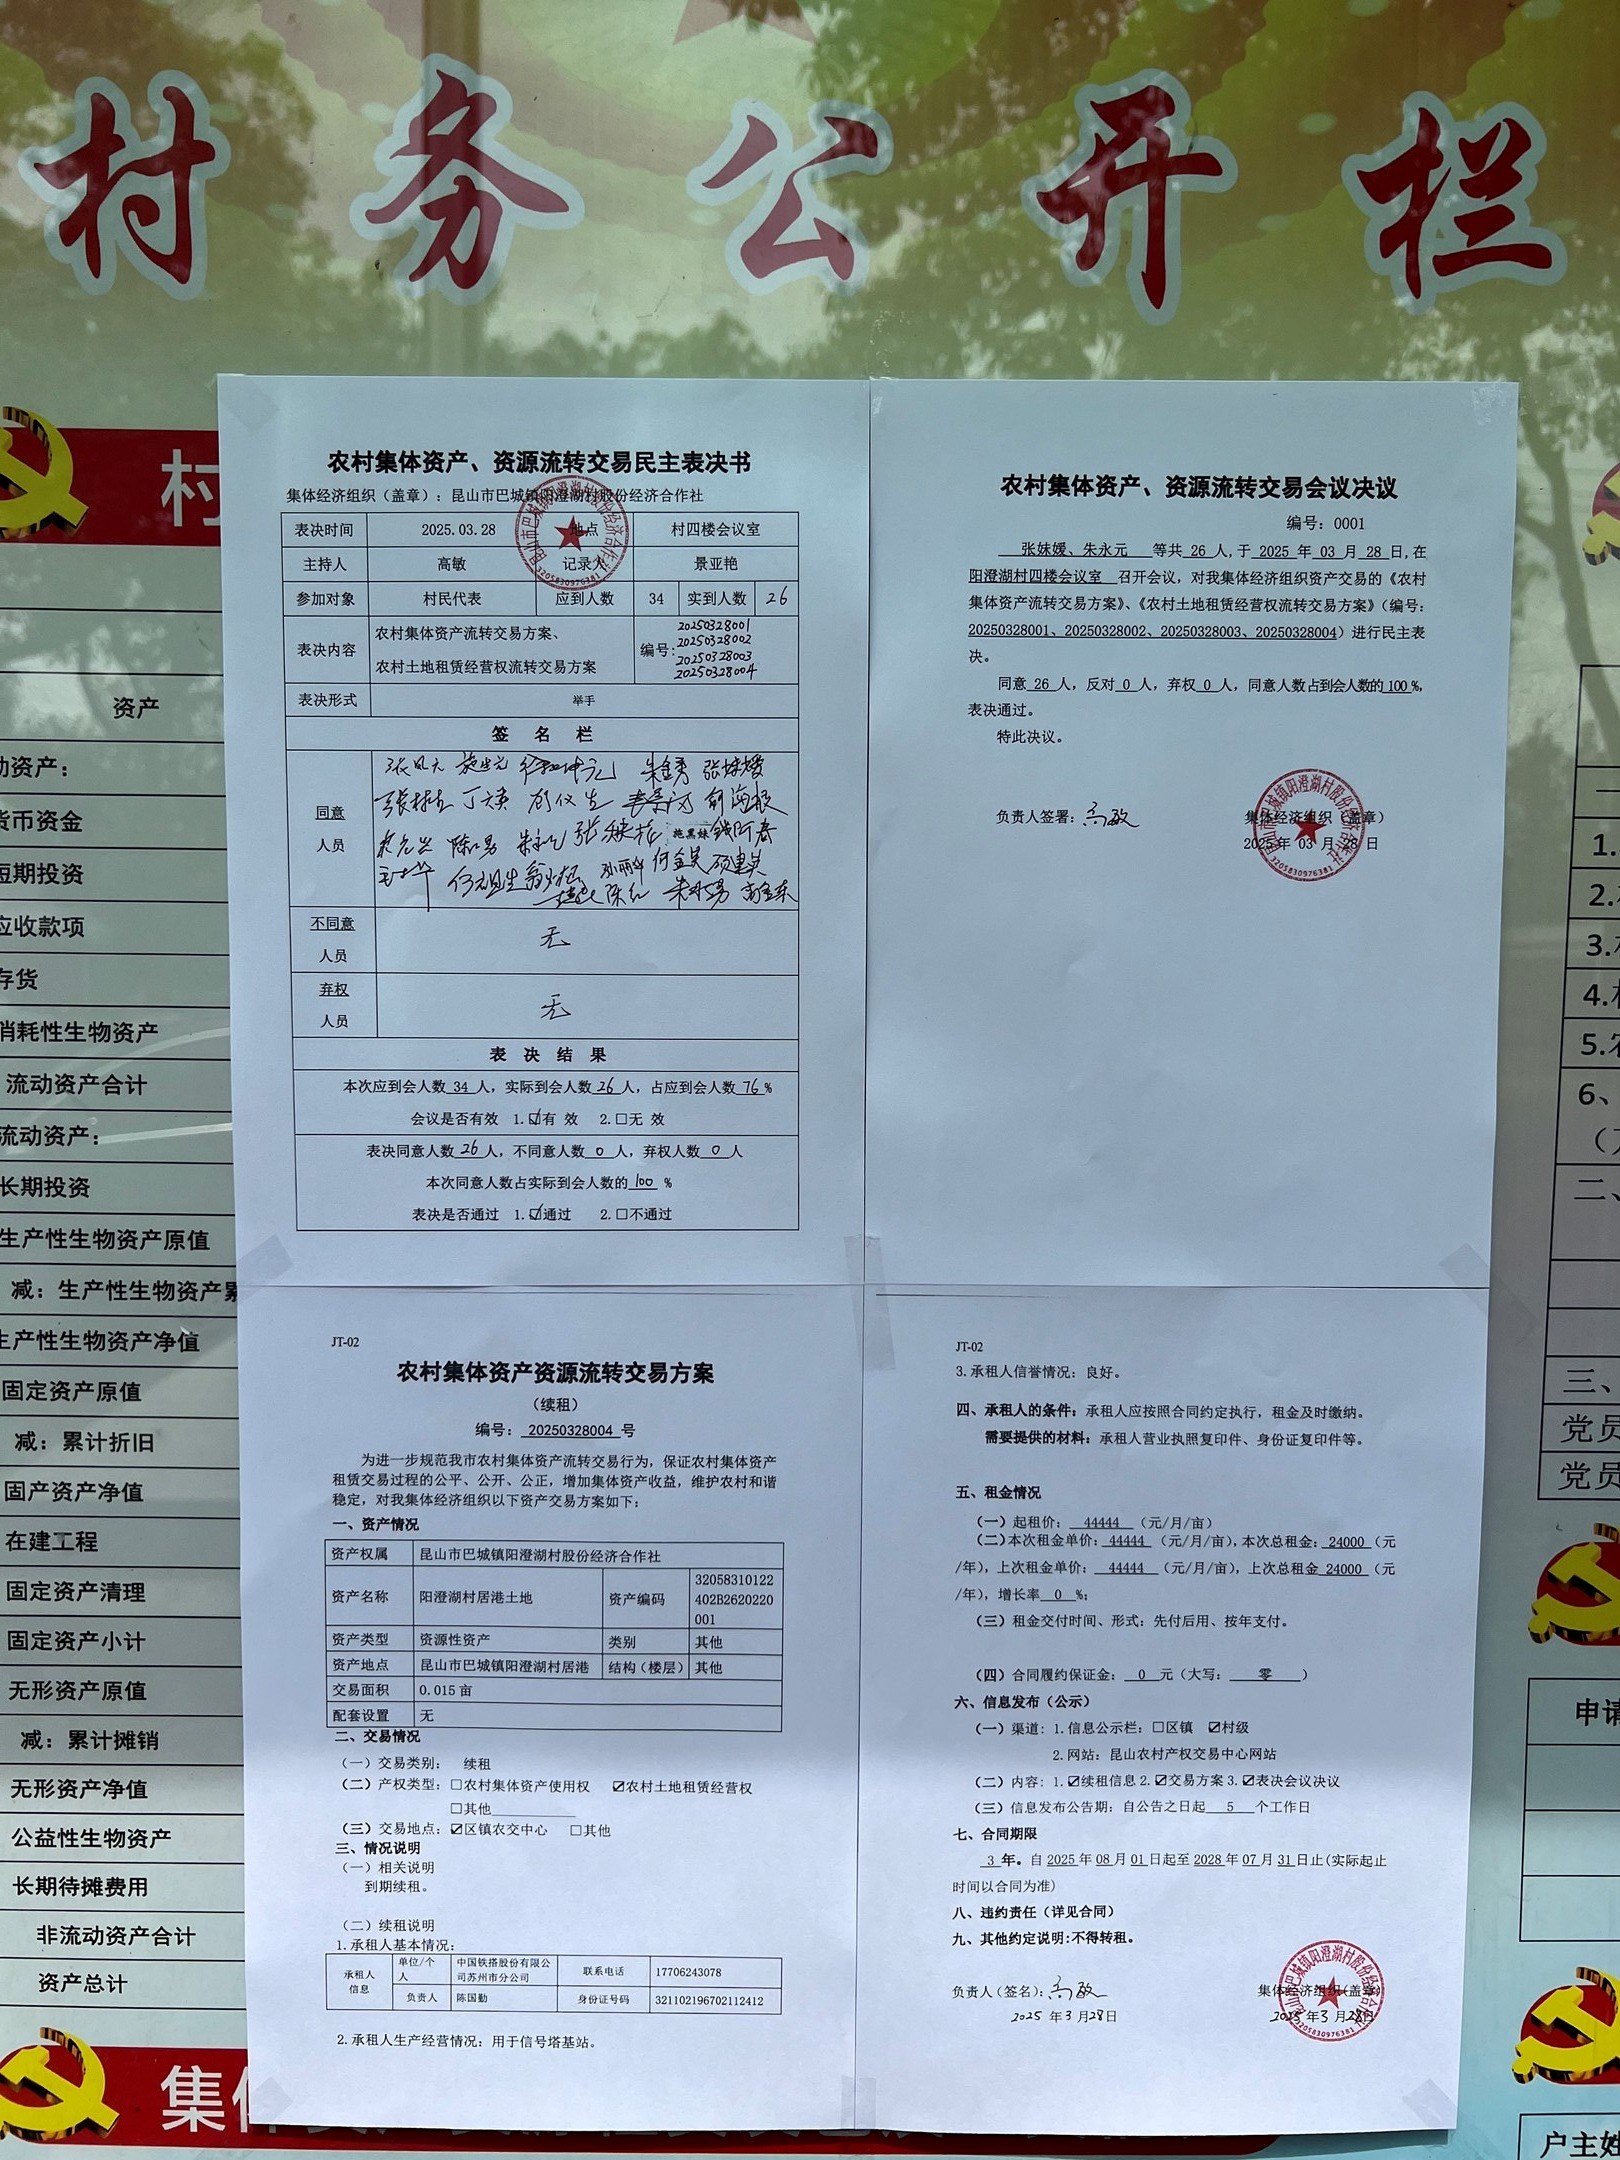 村务公开栏
农村集体资产、资源流转交易民主表决书
集体经济组织（盖章）：昆山市巴城镇阳澄湖村股份经济合作社
表决时间 2025.03.28 地点 村四楼会议室
主持人 高敏 记录人 景亚艳
参加对象 村民代表 应到人数 34 实到人数 26
表决内容 农村集体资产流转交易方案、
农村土地租赁经营权流转交易方案
编号:
20250328001
20250328002
20250328003
20250328004
表决形式 举手
签 名 栏
同意
人员
朱金秀 张妹嫒
施黑妹
不同意
人员
无
弃权
人员
无
表 决 结 果
本次应到会人数 34 人，实际到会人数 26 人，占应到会人数 76 %
会议是否有效 1.☑有 效 2.□无 效
表决同意人数 26 人，不同意人数 0 人，弃权人数 0 人
本次同意人数占实际到会人数的 100 %
表决是否通过 1.☑通过 2.□不通过
农村集体资产、资源流转交易会议决议
编号：0001
张妹嫒、朱永元 等共 26 人,于 2025 年 03 月 28 日,在
阳澄湖村四楼会议室 召开会议，对我集体经济组织资产交易的《农村
集体资产流转交易方案》、《农村土地租赁经营权流转交易方案》（编号：
20250328001、20250328002、20250328003、20250328004）进行民主表
决。
同意 26 人，反对 0 人，弃权 0 人，同意人数占到会人数的 100 %，
表决通过。
特此决议。
负责人签署：高敏
集体经济组织（盖章）
2025 年 03 月 28 日
JT-02
农村集体资产资源流转交易方案
（续租）
编号： 20250328004 号
为进一步规范我市农村集体资产流转交易行为，保证农村集体资产
租赁交易过程的公平、公开、公正，增加集体资产收益，维护农村和谐
稳定，对我集体经济组织以下资产交易方案如下：
一、资产情况
资产权属 昆山市巴城镇阳澄湖村股份经济合作社
资产名称 阳澄湖村居港土地 资产编码
32058310122
402B2620220
001
资产类型 资源性资产 类别 其他
资产地点 昆山市巴城镇阳澄湖村居港 结构（楼层） 其他
交易面积 0.015 亩
配套设置 无
二、交易情况
（一）交易类别： 续租
（二）产权类型：□农村集体资产使用权 ☑农村土地租赁经营权
□其他
（三）交易地点：☑区镇农交中心 □其他
三、情况说明
（一）相关说明
到期续租。
（二）续租说明
1.承租人基本情况：
承租人
信息
单位/个
人
中国铁塔股份有限公
司苏州市分公司
联系电话 17706243078
负责人 陈国勤 身份证号码 321102196702112412
2.承租人生产经营情况：用于信号塔基站。
JT-02
3.承租人信誉情况：良好。
四、承租人的条件：承租人应按照合同约定执行，租金及时缴纳。
需要提供的材料：承租人营业执照复印件、身份证复印件等。
五、租金情况
（一）起租价： 44444 （元/月/亩）
（二）本次租金单价: 44444 （元/月/亩），本次总租金: 24000（元
/年），上次租金单价： 44444 （元/月/亩），上次总租金 24000（元
/年），增长率 0 %；
（三）租金交付时间、形式：先付后用、按年支付。
（四）合同履约保证金： 0 元（大写： 零 ）
六、信息发布（公示）
（一）渠道：1.信息公示栏：□区镇 ☑村级
2.网站：昆山农村产权交易中心网站
（二）内容：1.☑续租信息 2.☑交易方案 3.☑表决会议决议
（三）信息发布公告期：自公告之日起 5 个工作日
七、合同期限
3 年。自 2025 年 08 月 01 日起至 2028 年 07 月 31 日止(实际起止
时间以合同为准)
八、违约责任（详见合同）
九、其他约定说明:不得转租。
负责人（签名）：高敏
2025 年 3 月 28 日
集体经济组织(盖章)
2025 年 3 月 28 日
村
资产
动资产：
货币资金
短期投资
应收款项
存货
消耗性生物资产
流动资产合计
流动资产：
长期投资
生产性生物资产原值
减：生产性生物资产累
生产性生物资产净值
固定资产原值
减：累计折旧
固产资产净值
在建工程
固定资产清理
固定资产小计
无形资产原值
减：累计摊销
无形资产净值
公益性生物资产
长期待摊费用
非流动资产合计
资产总计
集体
一
1.
2.
3.
4.
5.
6、
二、
三、
党员
党员
申请
户主姓